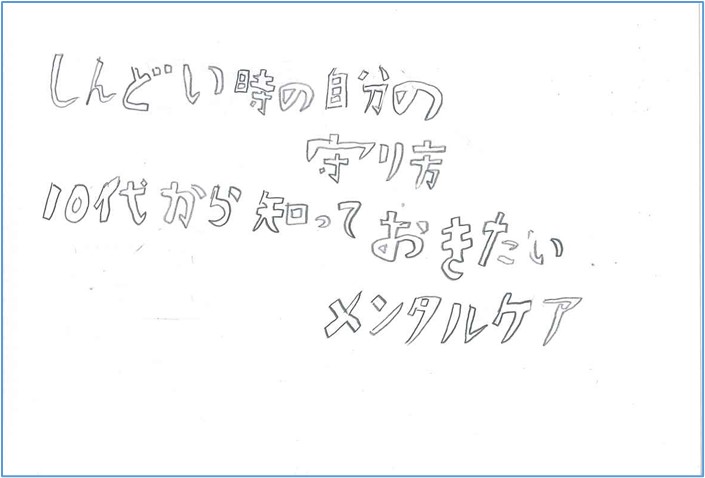 しんどい時の自分の
守り方
10代から知っておきたい
メンタルケア